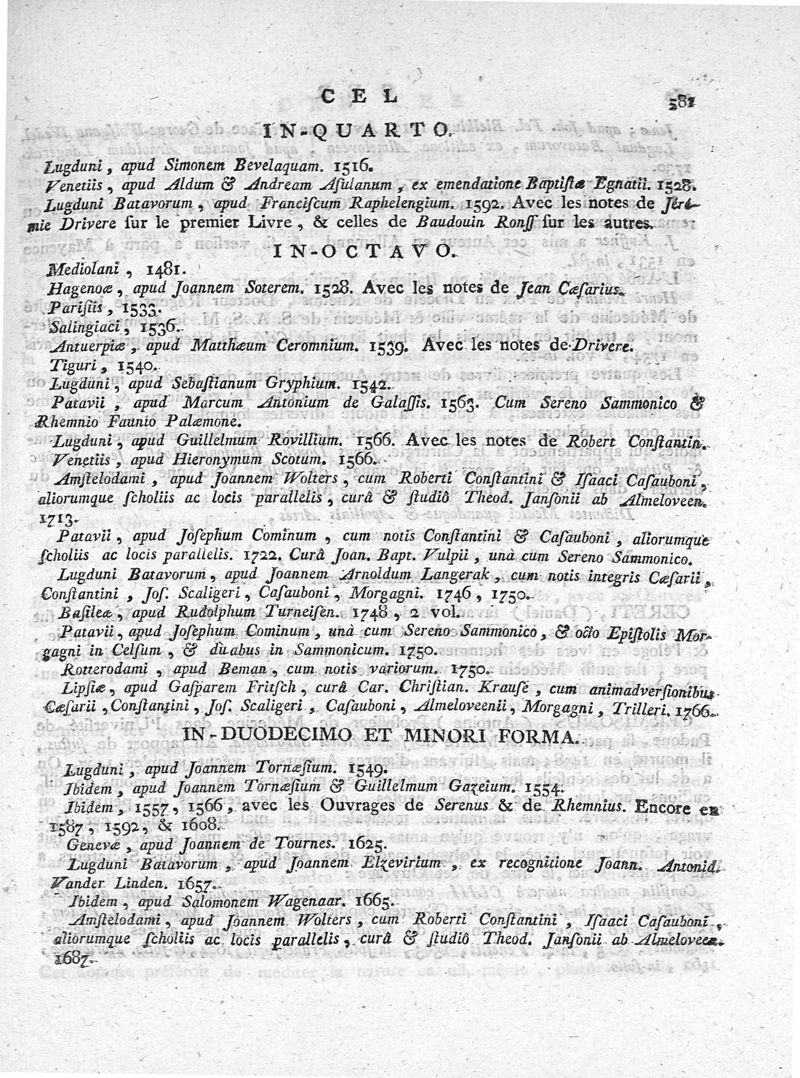 CEL
581
IN-QUARTO.
Lugduni, apud Simonem Bevelaquam. 1516.
Venetiis, apud Aldum & Andream Aſulanum, ex emendatione Baptiſtæ Egnatii. 1528.
Lugduni Batavorum, apud Franciſcum Raphelengium. 1592. Avec les notes de Jéré-
mie Drivere ſur le premier Livre, & celles de Baudouin Ronſſ ſur les autres.
IN-OCTAVO.
Mediolani, 1481.
Hagenoæ, apud Joannem Soterem. 1528. Avec les notes de Jean Cæſarius.
Pariſiis, 1533.
Salingiaci, 1536.
Antuerpiæ, apud Matthæum Ceromnium. 1539. Avec les notes de Drivere.
Tiguri, 1540.
Lugduni, apud Sebaſtianum Gryphium. 1542.
Patavii, apud Marcum Antonium de Galaſſis. 1563. Cum Sereno Sammonico &
Rhemnio Faunio Palæmone.
Lugduni, apud Guillelmum Rovillium. 1566. Avec les notes de Robert Conſtantin.
Venetiis, apud Hieronymum Scotum. 1566.
Amſtelodami, apud Joannem Wolters, cum Roberti Conſtantini & Iſaaci Caſauboni,
aliorumque ſcholiis ac locis parallelis, curâ & ſtudiô Theod. Janſonii ab Almeloveen.
1713.
Patavii, apud Joſephum Cominum, cum notis Conſtantini & Caſauboni, aliorumque
ſcholiis ac locis parallelis. 1722. Curâ Joan. Bapt. Vulpii, unà cum Sereno Sammonico.
Lugduni Batavorum, apud Joannem Arnoldum Langerak, cum notis integris Cæſarii,
Conſtantini, Joſ. Scaligeri, Caſauboni, Morgagni. 1746, 1750.
Baſileæ, apud Rudolphum Turneiſen. 1748, 2 vol.
Patavii, apud Joſephum Cominum, unà cum Sereno Sammonico, & octo Epiſtolis Mor-
gagni in Celſum, & duabus in Sammonicum. 1750.
Rotterodami, apud Beman, cum notis variorum. 1750.
Lipſiæ, apud Gaſparem Fritſch, curâ Car. Chriſtian. Krauſe, cum animadverſionibus
Cæſarii, Conſtantini, Joſ. Scaligeri, Caſauboni, Almeloveenii, Morgagni, Trilleri. 1766.
IN-DUODECIMO ET MINORI FORMA.
Lugduni, apud Joannem Tornæſium. 1549.
Ibidem, apud Joannem Tornæſium & Guillelmum Gazeium. 1554.
Ibidem, 1557, 1566, avec les Ouvrages de Serenus & de Rhemnius. Encore en
1587, 1592, & 1608.
Genevæ, apud Joannem de Tournes. 1625.
Lugduni Batavorum, apud Joannem Elzevirium, ex recognitione Joann. Antonid.
Vander Linden. 1657.
Ibidem, apud Salomonem Wagenaar. 1665.
Amſtelodami, apud Joannem Wolters, cum Roberti Conſtantini, Iſaaci Caſauboni,
aliorumque ſcholiis ac locis parallelis, curâ & ſtudiô Theod. Janſonii ab Almeloveen.
1687.